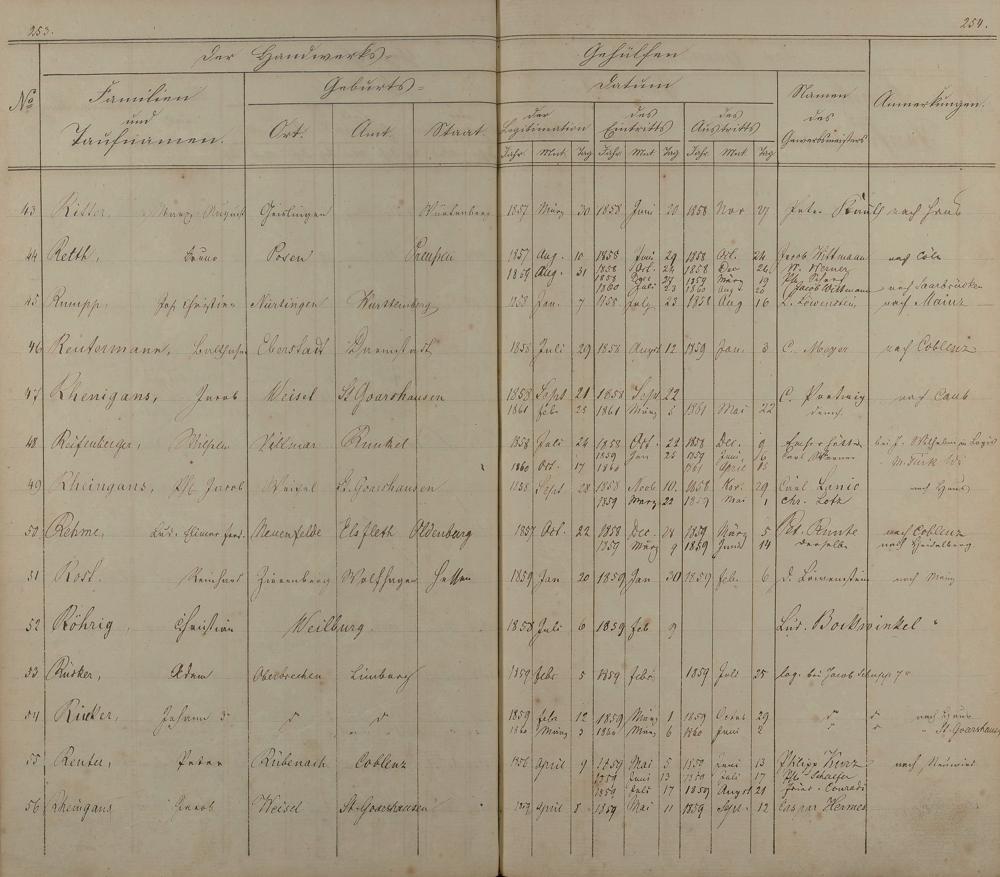 253.
254.
Der Handwerks=
Gehülfen
No
Familien
und
Taufnamen.
Geburts=
Ort.
Amt.
Staat.
Datum
der
Legitimation
des
Eintritts
des
Austritts
Jahr. Mnt. Tag Jahr. Mnt Tag Jahr. Mnt Tag
Namen
des
Gewerbsmeisters
Anmerkungen.
43 Ritter, August Geislingen 1857 März 30 1858 Juni 20 1858 Nov 27 Peter nach Haus
44 Relth, Bruno Posen Preußen 1857 Aug. 10 1858 Juni 29 1858 Oct. 24 Jacob Wittmann nach Cöln
1859 Aug. 31 1858 Oct. 24 1858 Dec 26 W. Werner
1858 Dec 27 1859 März 19
1860 Juli 23 1860 Aug 26 Jacob Wittmann nach Saarbrücken
45 Rumpp, Joh. Christian Nürtingen Würtemberg 1858 Jan. 7 1858 July 23 1858 Aug 16 L. Löwenstein nach Mainz
46 Reutermann, Balthasar Eberstadt Darmstadt 1858 Juli 29 1858 August 12 1859 Jan. 3 C. Mayer nach Coblenz
47 Rhenigans, Jacob Weisel St Goarshausen 1858 Sept 21 1858 Sept 22 C. nach Caub
1861 Feb. 25 1861 März 5 1861 Mai 22
48 Reifenberger, Wilhelm Villmar Runkel 1858 Juli 24 1858 Oct. 22 1858 Dec. 9
1859 Jan 25 1859 Juni 6
1860 Oct. 17 1860 1861 April 15
49 Rheingans, Ph. Jacob Weisel St. Goarshausen 1858 Sept. 28 1858 Novb 10. 1858 29 Carl nach Haus
1859 März 22 1859 Mai 1 Chr. Lotz
50 Rehme, Lüd. Elimar Ferd. Neuenfelde Elsfleth Oldenburg 1857 Oct. 22 1858 Dec. 24 1859 März 5 nach Coblenz
1859 März 9 1859 Juni 14 Derselbe nach Heidelberg
51 Rost. Reinhard Zierenberg Wolfhagen Hessen 1859 Jan 20 1859 Jan 30 1859 Feb. 6 D. Löwenstein nach Mainz
52 Röhrig, Christian Weilburg 1858 Juli 6 1859 Feb 9 Lud. Bockwinkel "
53. Rücker, Adam Oberbrechen Limburg 1859 Febr 5 1859 Febr. 1859 Juli 25 log. bei Jacob
54 Rücker, Johann 1859 Febr 12 1859 März 1 1859 29 nach Haus
1860 März 3 1860 März 6 1860 Juni 2 St. Goarshausen
55 Reuter, Peter Rübenach Coblenz April 9 1859 Mai 5 1859 Juni 13 Philipp Kurz nach Neuwied
1859 Juni 13 1859 Juli 17 Ph. Schäfer
1859 Juli 17 1859 August 21 Conradi
56 Rheingans Jacob Weisel St. Goarshausen 1859 April 8 1859 Mai 11 1859 Sept. 12 Caspar Hermes